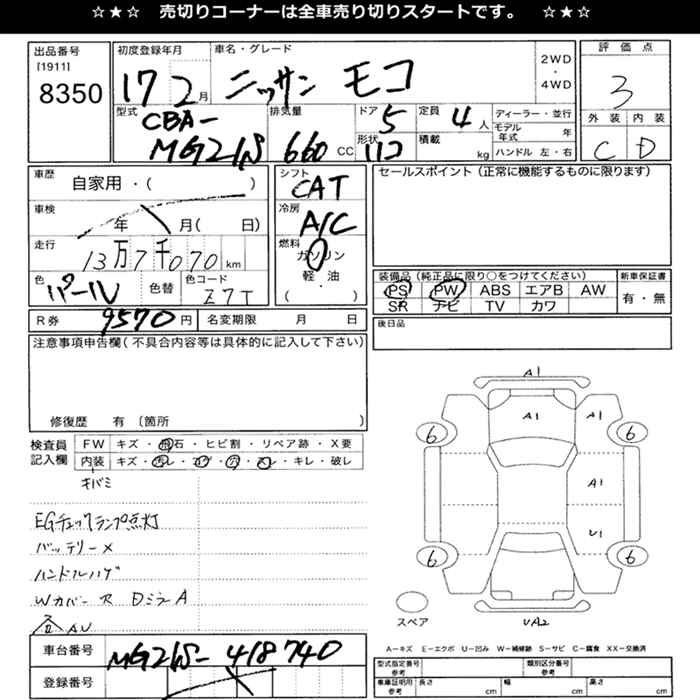 ☆★☆ 売切りコーナーは全車売り切りスタートです。 ☆★☆
出品番号
[1911]
8350
初度登録年月
17 2月
車名・グレード
ニッサン モコ
2WD
・
4WD
評価点
3
外装 内装
C D
型式
CBA-
MG21S
排気量
660 CC
ドア
5
形状
定員
4 人
積載
kg
ディーラー・並行
モデル年式 年
ハンドル 左・右
車歴
自家用・( )
車検
年 月( 日)
走行
13万7千070 km
色
パール
色替
色コード
Z7T
シフト
CAT
冷房
A/C
燃料
ガソリン
軽・油
( )
セールスポイント(正常に機能するものに限ります)
装備品(純正品に限り○をつけてください)
PS PW ABS エアB AW
SR ナビ TV カワ
新車保証書
有・無
後日品
R券 9570円
名変期限 月 日
注意事項申告欄(不具合内容等は具体的に記入して下さい)
修復歴 有 〔箇所 〕
検査員
記入欄
FW キズ・飛石・ヒビ割・リペア跡・X要
内装 キズ・汚レ・コゲ・穴・スレ・キレ・破レ
キバミ
EGチェックランプ点灯
バッテリー×
ハンドルハゲ
Wカバー ス DミラーA
A1
A1 A1
6 6
A1
U1
6 6
スペア
UA2
車台番号
MG21S-418740
登録番号
A－キズ E－エクボ U－凹み W－補修跡 S－サビ C－腐食 XX－交換済
型式指定番号
参考
類別区分番号
参考
車庫証明用
参考
長さ cm 幅 cm 高さ cm